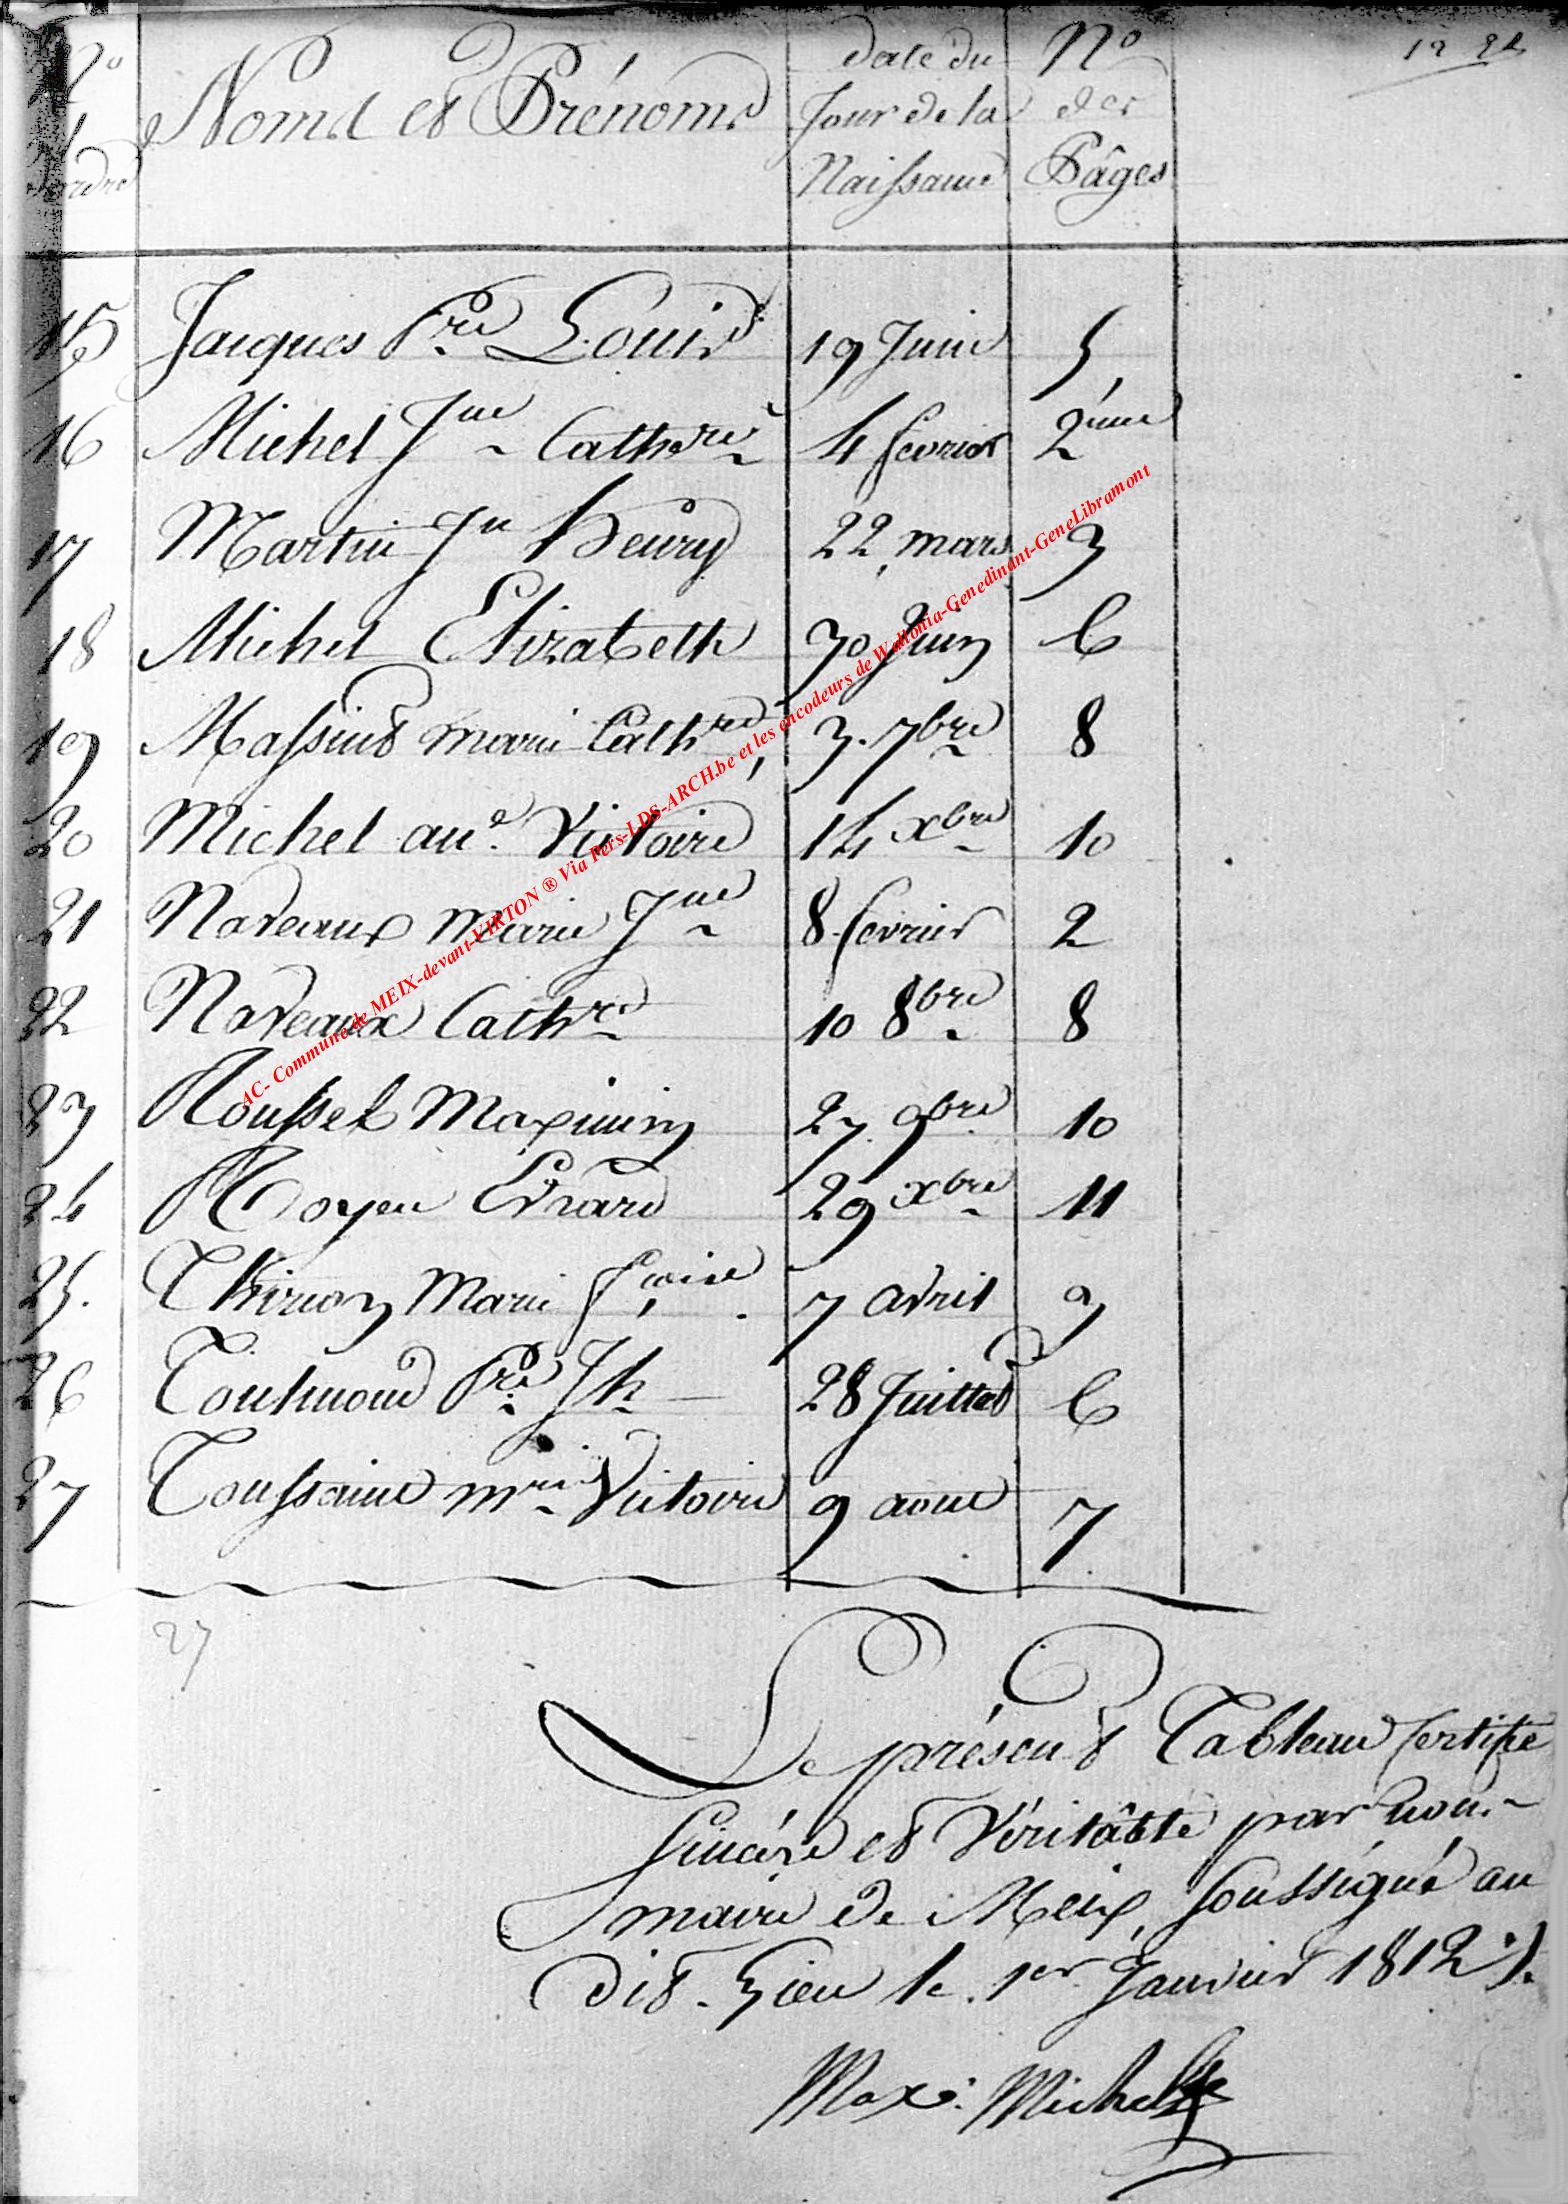 N° d'ordre | Noms et Prénoms | date du Jour de la Naissance | N° des Pâges
15 Jacques Pre Louis 19 Juin 5
16 Michel Jne Cathre 4 fevrier 2ème
17 Martin Jn henry 22 mars 3
18 Michel Elizabeth 30 Juin 6
19 Massint marie Cathre 3. 7bre 8
20 Michel ane Victoire 14 xbre 10
21 Naveaux Marie Jne 8 fevrier 2
22 Naveaux Cathre 10 8bre 8
23 Roussel Maximin 27 9bre 10
24 Royen Evrard 29 xbre 11
25. Thirion Marie fcoise 7 avril 3
26 Toulmond Pre Jh 28 Juillet 6
27 Toussaint mrie Victoire 9 aout 7
27
Le présent Tableau Certifié
Sincére et Véritâble par nous
maire de Meix, soussigné au
dit Lieu le 1er Janvier 1812
Max: Michel
AC- Commune de MEIX-devant-VIRTON ® Via Pers-LDS-ARCH.be et les encodeurs de Wallonia-Genedinant-GeneLibramont